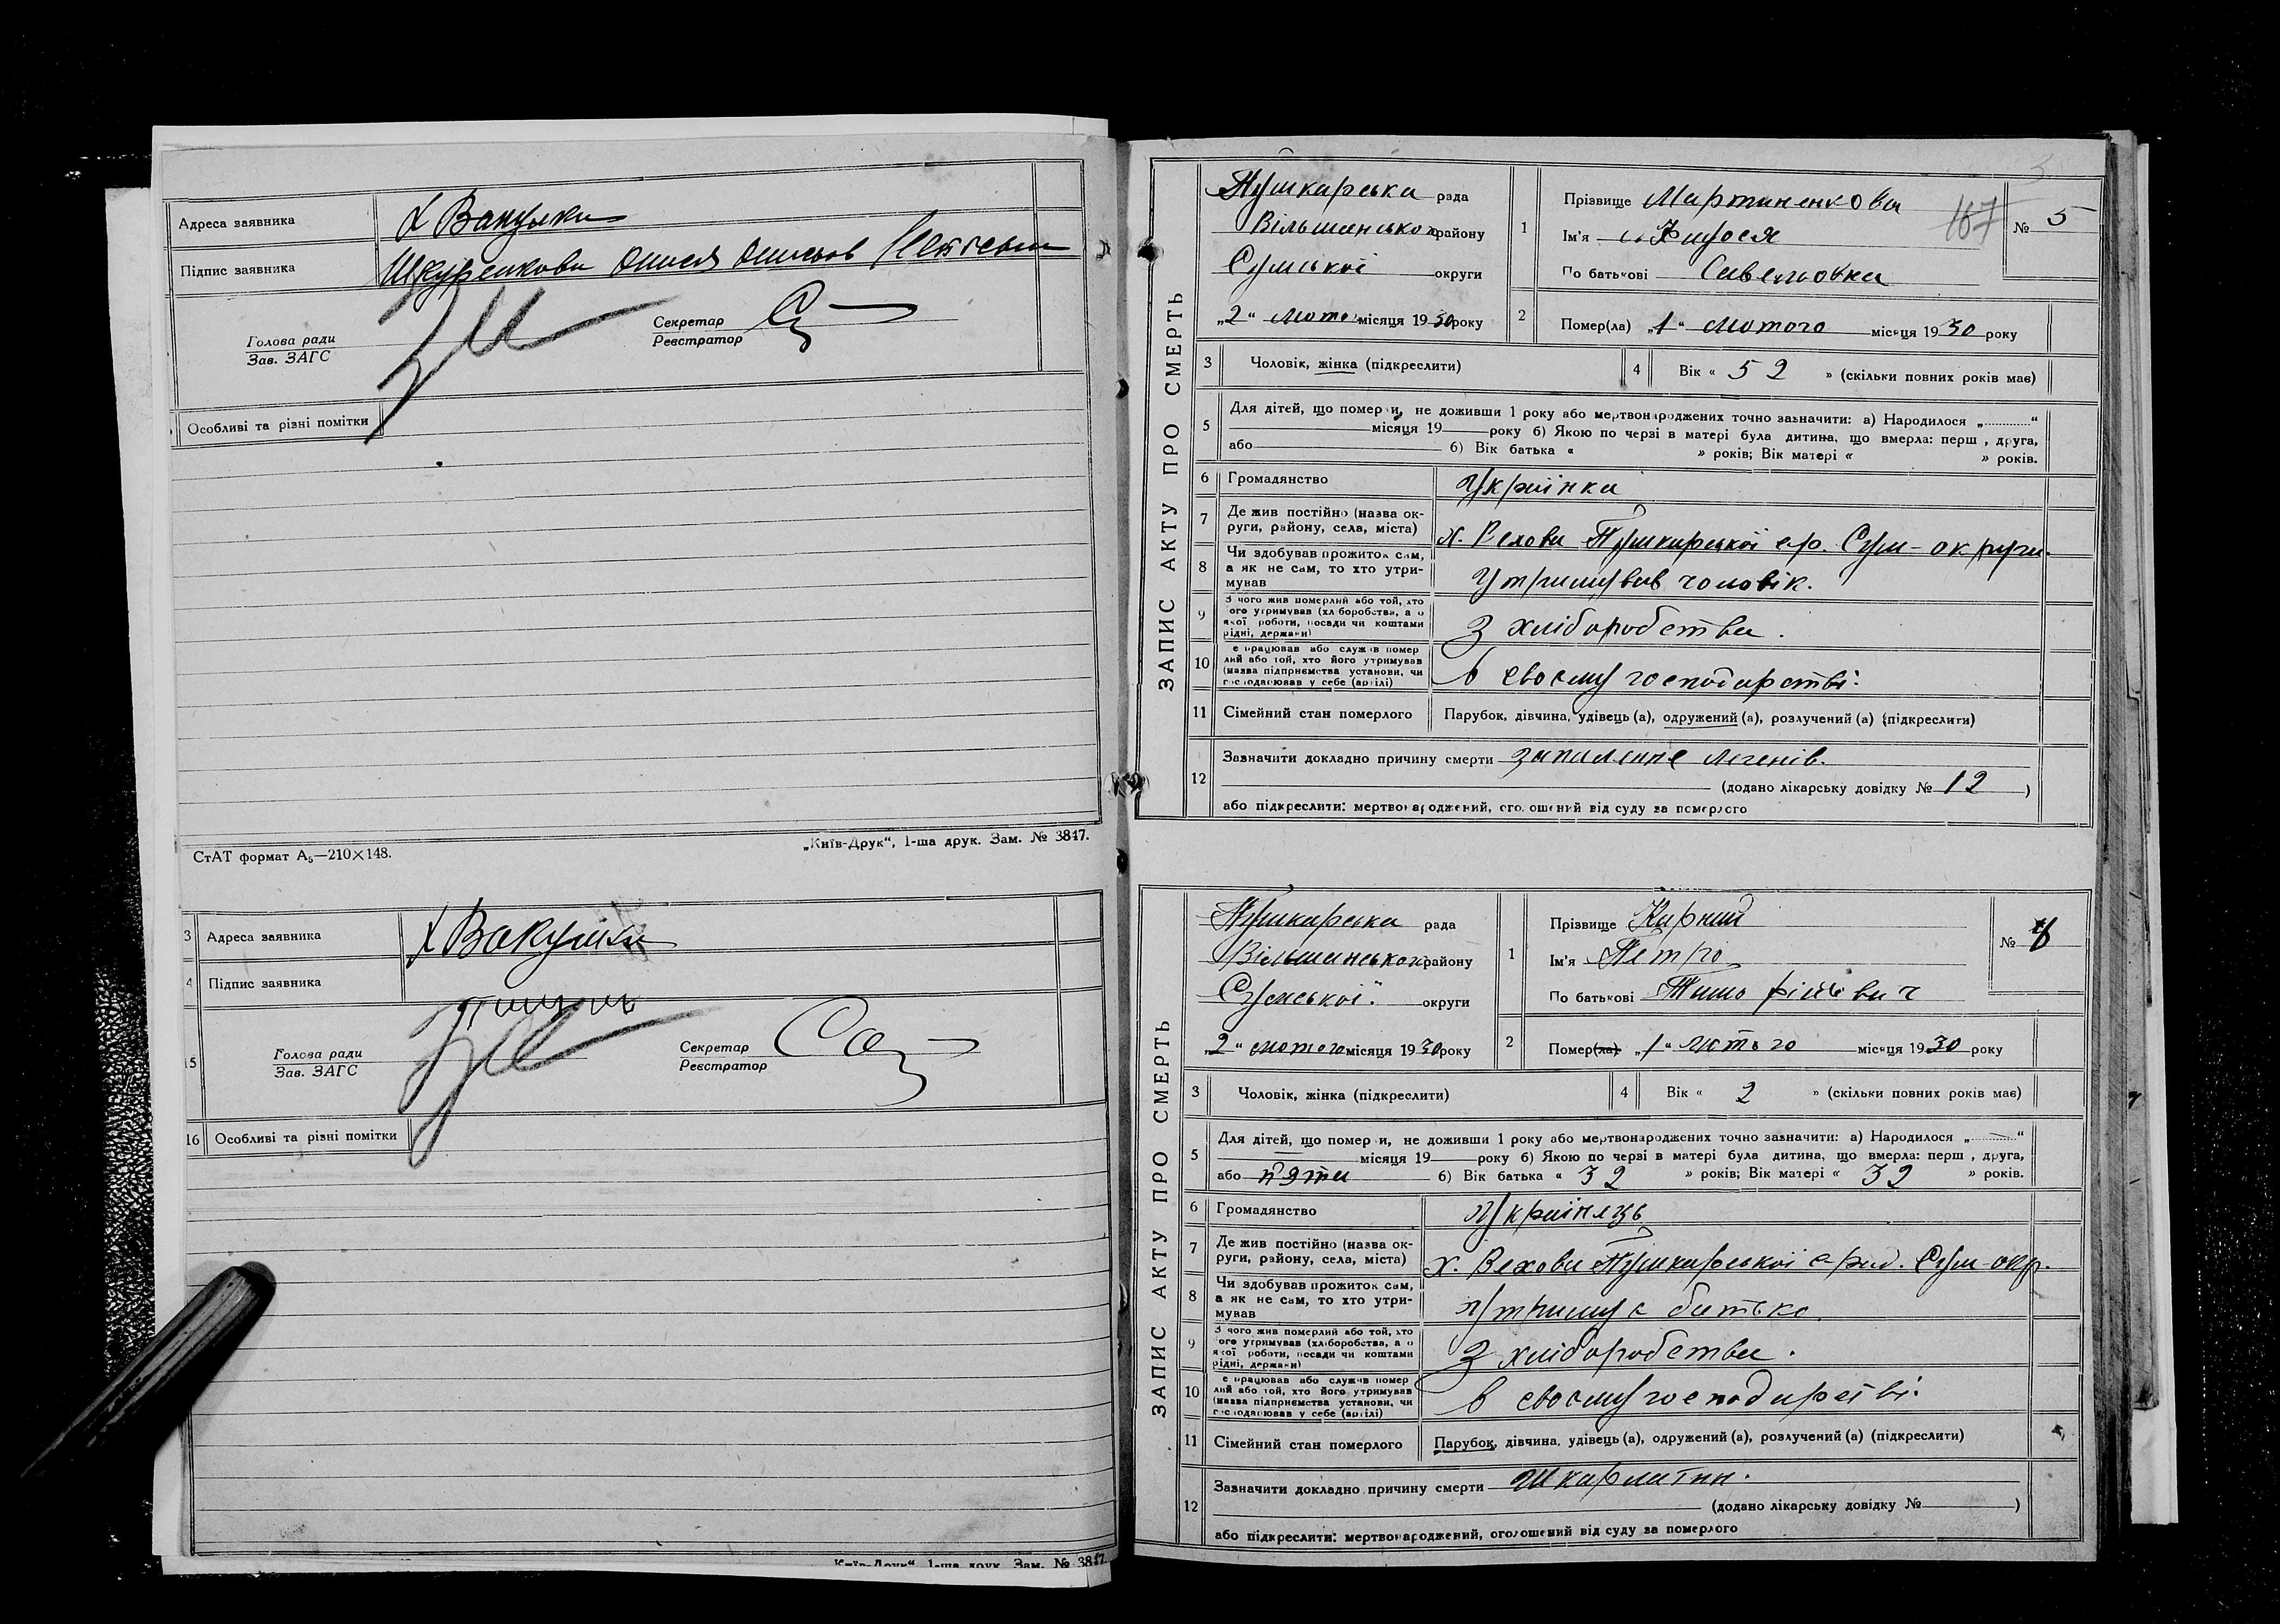 Адреса заявника х Вакулки
Підпис заявника Шкуренкова
Голова ради
Зав. ЗАГС
Секретар
Реєстратор
Особливі та різні помітки
СтАТ формат А₅—210×148.
„Київ-Друк“, 1-ша друк. Зам. № 3847.
3 Адреса заявника х Вакулки
4 Підпис заявника
15 Голова ради
Зав. ЗАГС
Секретар
Реєстратор
16 Особливі та різні помітки
„Київ-Друк“, 1-ша друк. Зам. № 3847.
ЗАПИС АКТУ ПРО СМЕРТЬ
Пушкарська рада
Вільшанського району
Сумської округи
„2“ лютого місяця 1930 року
1 Прізвище Мартиненкова
Ім'я Фидося
По батькові Савельовна
167
№ 5
2 Помер(ла) „1“ лютого місяця 1930 року
3 Чоловік, жінка (підкреслити)
4 Вік « 52 » (скільки повних років має)
5 Для дітей, що померли, не доживши 1 року або мертвонароджених точно зазначити: а) Народилося „ “
місяця 19 року б) Якою по черзі в матері була дитина, що вмерла: перш , друга,
або б) Вік батька « » років; Вік матері « » років.
6 Громадянство Українка
7 Де жив постійно (назва ок-
руги, району, села, міста) х. Вехова Пушкарської с.р. Сум-округи.
8 Чи здобував прожиток сам,
а як не сам, то хто утри-
мував Утримував чоловік.
9 З чого жив померлий або той, хто
його утримував (хліборобства, а о
якої роботи, посади чи коштами
рідні, держави) З хліборобства.
10 е працював або служив помер
лий або той, хто його утримував
(назва підприємства установи, чи
господарював у себе (артілі) в своєму господарстві.
11 Сімейний стан померлого Парубок, дівчина, удівець (а), одружений (а), розлучений (а) (підкреслити)
12 Зазначити докладно причину смерти запалення легенів.
(додано лікарську довідку № 12 )
або підкреслити: мертвонароджений, оголошений від суду за померлого
ЗАПИС АКТУ ПРО СМЕРТЬ
Пушкарська рада
Вільшанського району
Сумської округи
„2“ лютого місяця 1930 року
1 Прізвище Карпий
Ім'я Петро
По батькові Тимофійович
№
2 Помер(ла) „1“ лютого місяця 1930 року
3 Чоловік, жінка (підкреслити)
4 Вік « 2 » (скільки повних років має)
5 Для дітей, що померли, не доживши 1 року або мертвонароджених точно зазначити: а) Народилося „ “
місяця 19 року б) Якою по черзі в матері була дитина, що вмерла: перш , друга,
або п'ята б) Вік батька « 32 » років; Вік матері « 32 » років.
6 Громадянство Українець
7 Де жив постійно (назва ок-
руги, району, села, міста) х. Вехова Пушкарської с-рад. Сум-окр.
8 Чи здобував прожиток сам,
а як не сам, то хто утри-
мував Утримує батько
9 З чого жив померлий або той, хто
його утримував (хліборобства, а о
якої роботи, посади чи коштами
рідні, держави) З хліборобства.
10 е працював або служив помер
лий або той, хто його утримував
(назва підприємства установи, чи
господарював у себе (артілі) в своєму господарстві.
11 Сімейний стан померлого Парубок, дівчина, удівець (а), одружений (а), розлучений (а) (підкреслити)
12 Зазначити докладно причину смерти Шкарлатин.
(додано лікарську довідку № )
або підкреслити: мертвонароджений, оголошений від суду за померлого